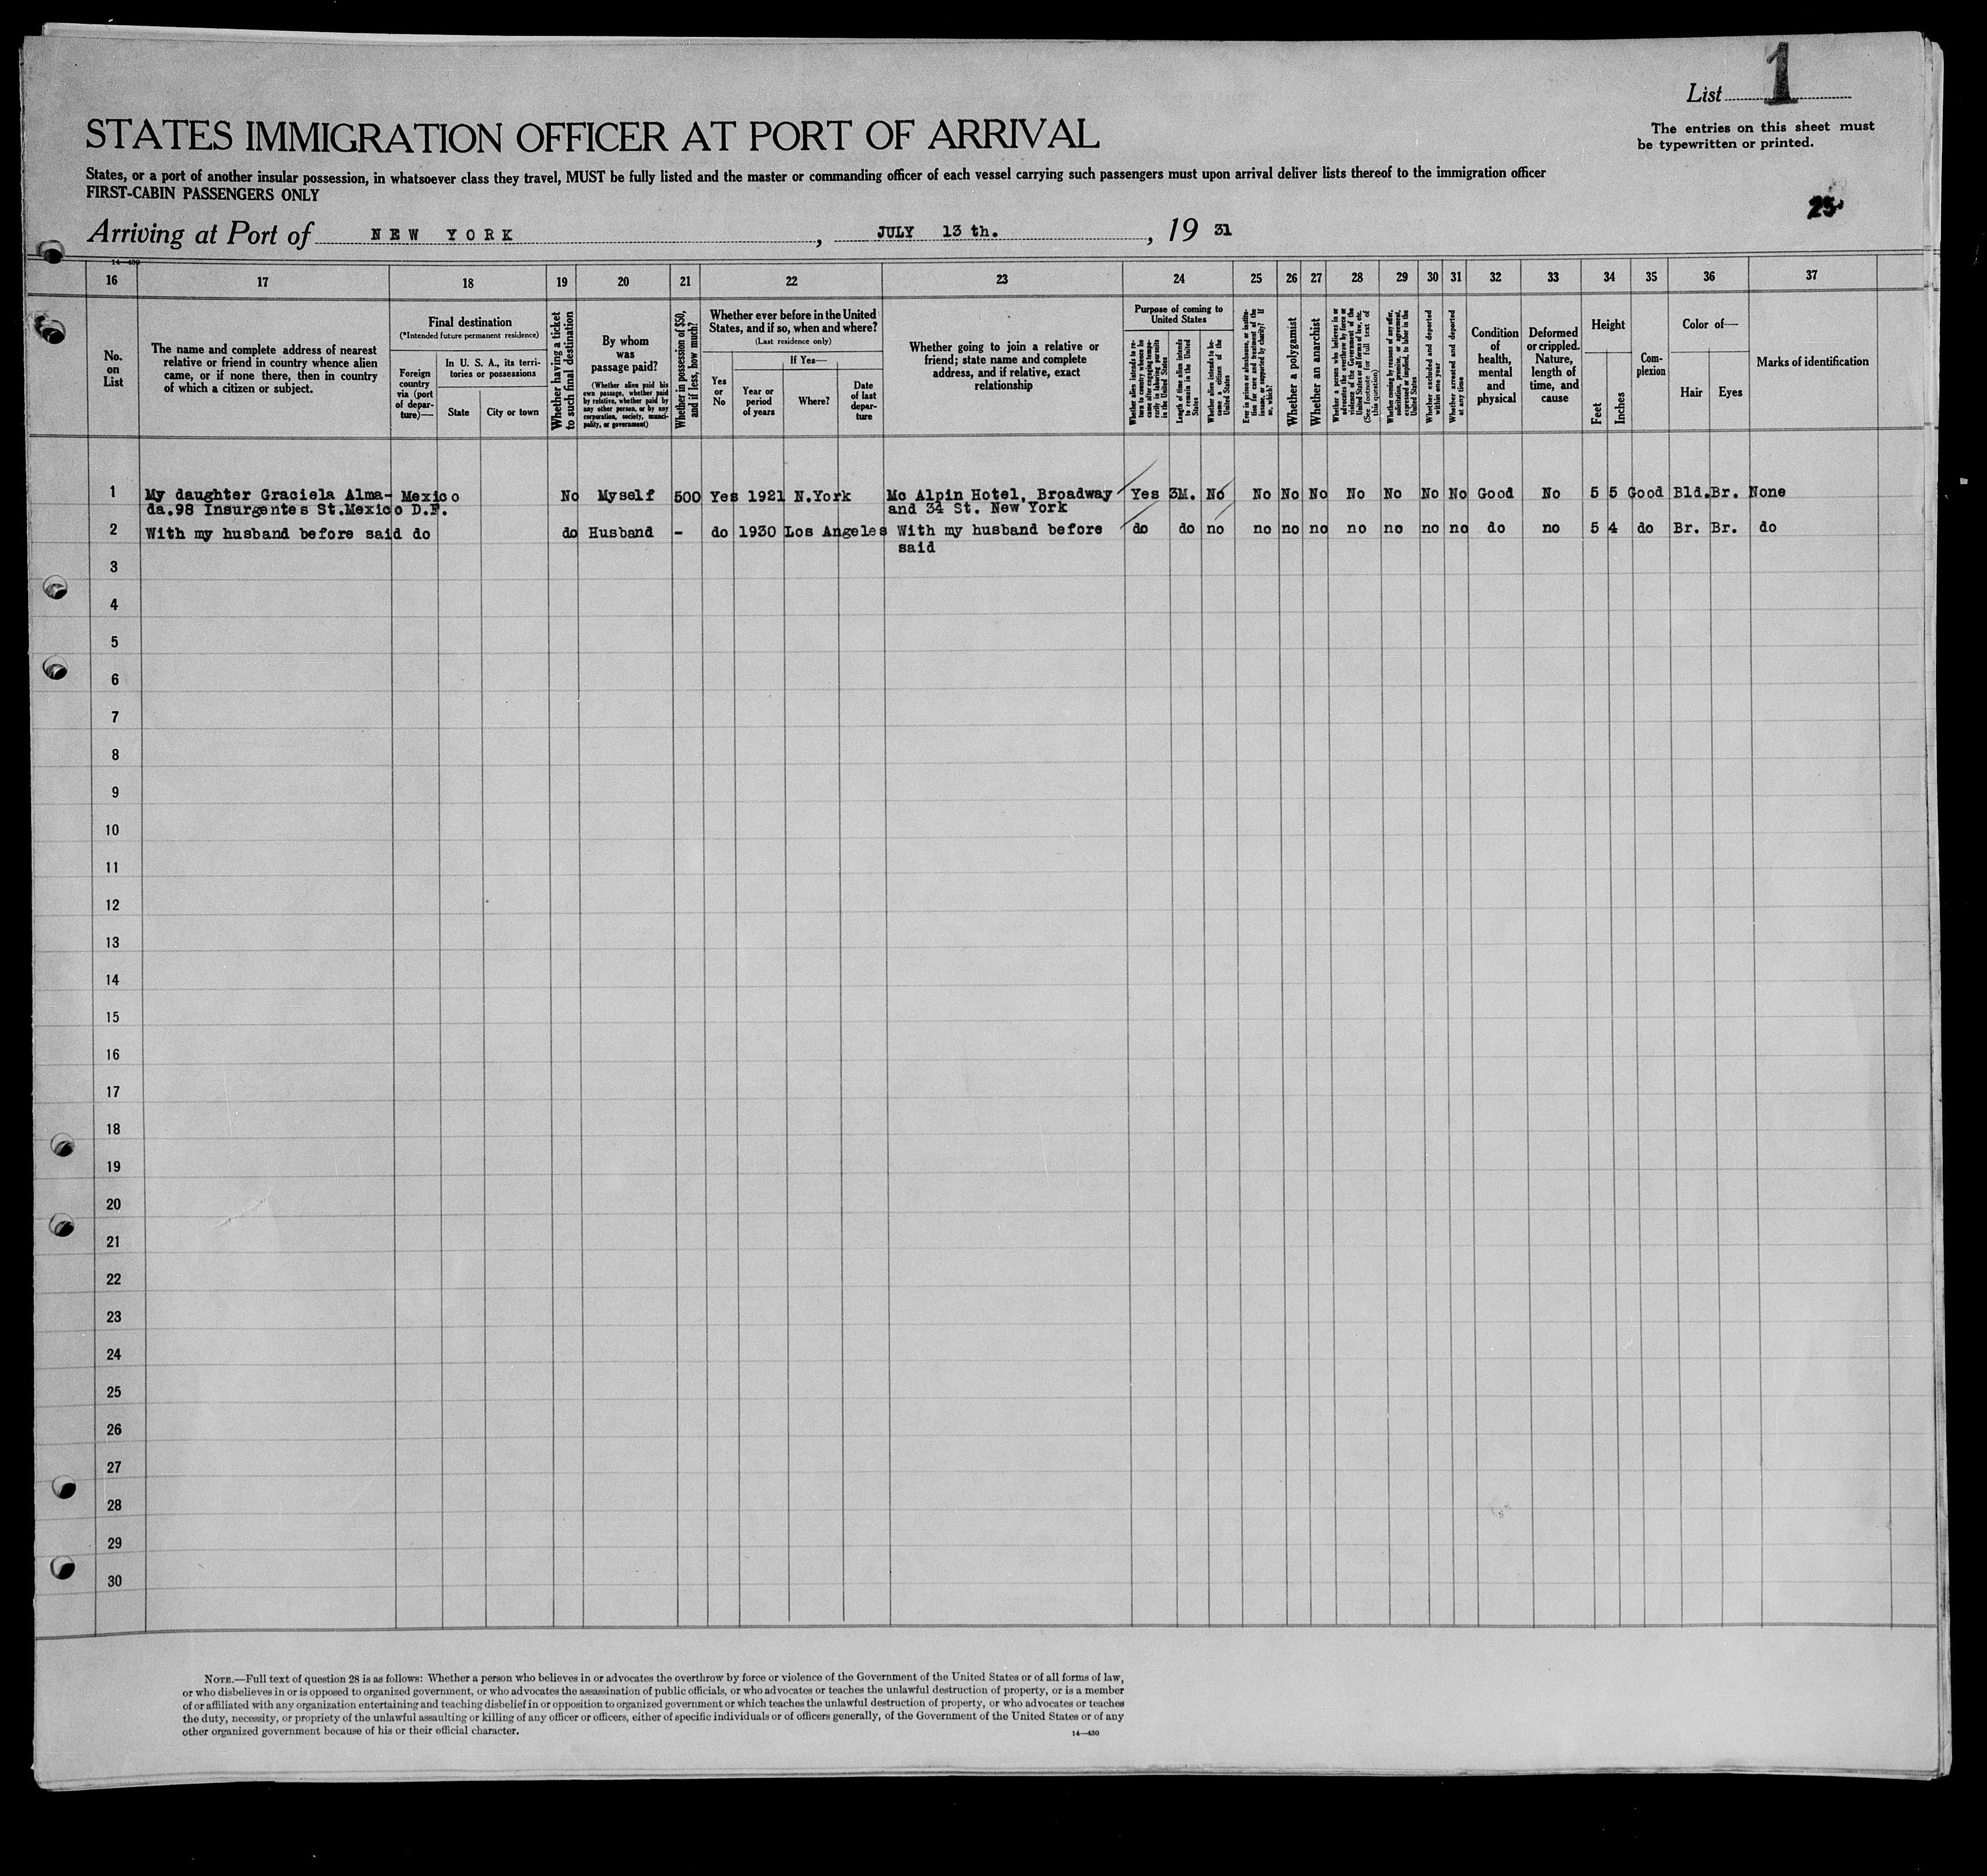 List 1
STATES IMMIGRATION OFFICER AT PORT OF ARRIVAL
The entries on this sheet must
be typewritten or printed.
States, or a port of another insular possession, in whatsoever class they travel, MUST be fully listed and the master or commanding officer of each vessel carrying such passengers must upon arrival deliver lists thereof to the immigration officer
FIRST-CABIN PASSENGERS ONLY
25
Arriving at Port of NEW YORK, JULY 13 th., 19 31
14—430
16 17 18 19 20 21 22 23 24 25 26 27 28 29 30 31 32 33 34 35 36 37
No.
on
List
The name and complete address of nearest
relative or friend in country whence alien
came, or if none there, then in country
of which a citizen or subject.
Final destination
(*Intended future permanent residence)
Foreign
country
via (port
of depar-
ture)—
In U. S. A., its terri-
tories or possessions
State
City or town
Whether having a ticket
to such final destination
By whom
was
passage paid?
(Whether alien paid his
own passage, whether paid
by relative, whether paid by
any other person, or by any
corporation, society, munici-
pality, or government)
Whether in possession of $50,
and if less, how much?
Whether ever before in the United
States, and if so, when and where?
(Last residence only)
Yes
or
No
If Yes—
Year or
period
of years
Where?
Date
of last
depar-
ture
Whether going to join a relative or
friend; state name and complete
address, and if relative, exact
relationship
Purpose of coming to
United States
Whether alien intends to re-
turn to country whence he
came after engaging tempo-
rarily in laboring pursuits
in the United States
Length of time alien intends
to remain in the United
States
Whether alien intends to be-
come a citizen of the
United States
Ever in prison or almshouse, or institu-
tion for care and treatment of the
insane, or supported by charity? If
so, which?
Whether a polygamist
Whether an anarchist
Whether a person who believes in or
advocates the overthrow by force or
violence of the Government of the
United States or all forms of law, etc.
(See footnote for full text of
this question)
Whether coming by reason of any offer,
solicitation, promise, or agreement,
expressed or implied, to labor in the
United States
Whether excluded and deported
within one year
Whether arrested and deported
at any time
Condition
of
health,
mental
and
physical
Deformed
or crippled.
Nature,
length of
time, and
cause
Height
Feet
Inches
Com-
plexion
Color of—
Hair
Eyes
Marks of identification
1 My daughter Graciela Alma- Mexico No Myself 500 Yes 1921 N.York Mc Alpin Hotel, Broadway Yes 3M. No No No No No No No No Good No 5 5 Good Bld. Br. None
da.98 Insurgentes St.Mexico D.F. and 34 St. New York
2 With my husband before said do do Husband - do 1930 Los Angeles With my husband before do do no no no no no no no no do no 5 4 do Br. Br. do
said
3
4
5
6
7
8
9
10
11
12
13
14
15
16
17
18
19
20
21
22
23
24
25
26
27
28
29
30
NOTE.—Full text of question 28 is as follows: Whether a person who believes in or advocates the overthrow by force or violence of the Government of the United States or of all forms of law,
or who disbelieves in or is opposed to organized government, or who advocates the assassination of public officials, or who advocates or teaches the unlawful destruction of property, or is a member
of or affiliated with any organization entertaining and teaching disbelief in or opposition to organized government or which teaches the unlawful destruction of property, or who advocates or teaches
the duty, necessity, or propriety of the unlawful assaulting or killing of any officer or officers, either of specific individuals or of officers generally, of the Government of the United States or of any
other organized government because of his or their official character.
14—430